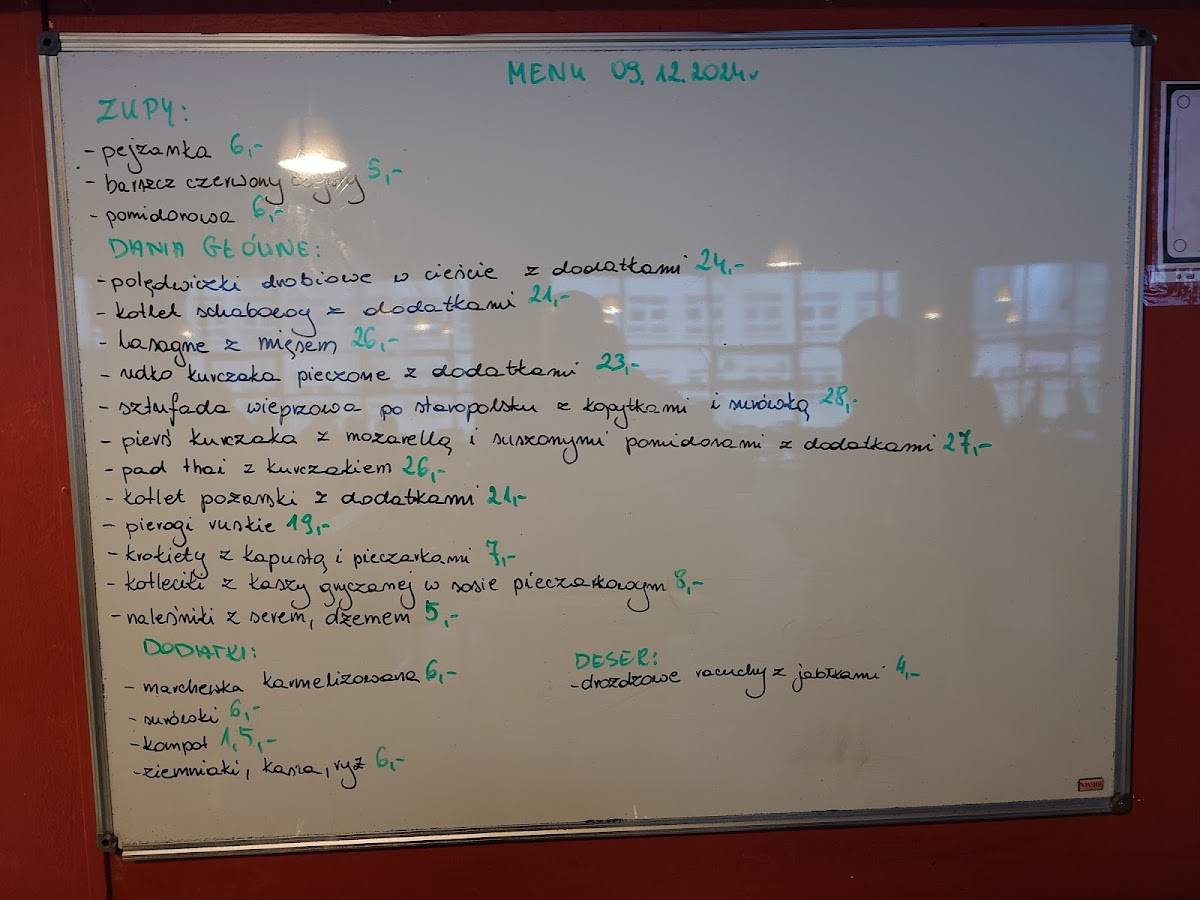 MENU 09.12.2024r
ZUPY:
- pejzanka 6,-
- barszcz czerwony 5,-
- pomidorowa 6,-
DANIA GŁÓWNE:
- polędwiczki drobiowe w cieście z dodatkami 24,-
- kotlet schabowy z dodatkami 21,-
- Lasagne z mięsem 26,-
- udko kurczaka pieczone z dodatkami 23,-
- sztufada wieprzowa po staropolsku z kopytkami i surówką 28,-
- pierś kurczaka z mozarellą i suszonymi pomidorami z dodatkami 27,-
- pad thai z kurczakiem 26,-
- kotlet pożarski z dodatkami 21,-
- pierogi ruskie 19,-
- krokiety z kapustą i pieczarkami 7,-
- kotleciki z kaszy gryczanej w sosie pieczarkowym 8,-
- naleśniki z serem, dżemem 5,-
DODATKI:
- marchewka karmelizowana 6,-
- surówki 6,-
- kompot 1,5,-
- ziemniaki, kasza, ryż 6,-
DESER:
- drożdżowe racuchy z jabłkami 4,-